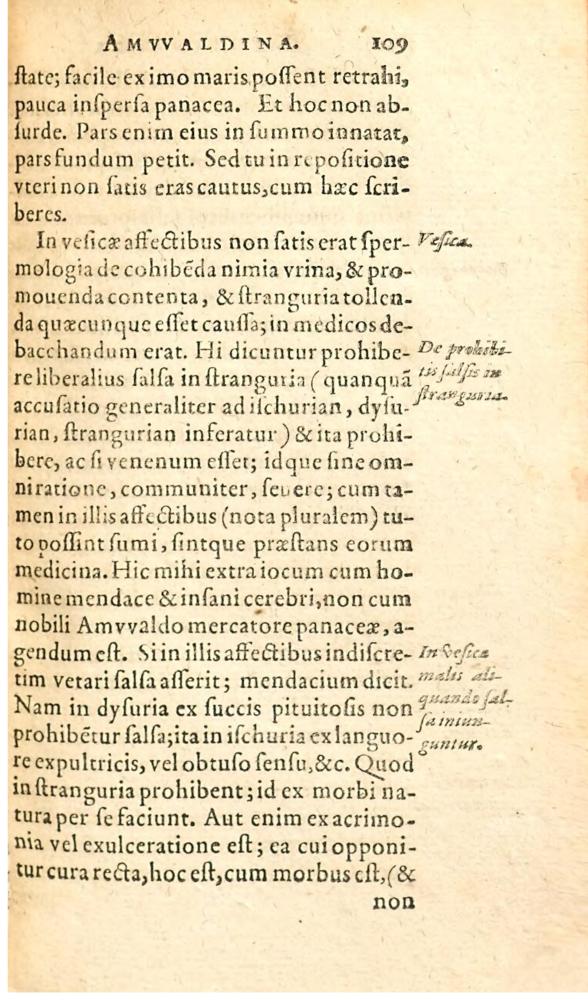 AMVVALDINA. 109
ſtate; facile ex imo maris poſſent retrahi,
pauca inſperſa panacea. Et hoc non ab-
ſurde. Pars enim eius in ſummo innatat,
pars fundum petit. Sed tu in repoſitione
vteri non ſatis eras cautus, cum hæc ſcri-
beres.
In veſicæ affectibus non ſatis erat ſper-
Veſica.
mologia de cohibẽda nimia vrina, & pro-
mouenda contenta, & ſtranguria tollen-
da quæcunque eſſet cauſſa; in medicos de-
bacchandum erat. Hi dicuntur prohibe-
De prohibi-
re liberalius ſalſa in ſtranguria (quanquã
tis ſalſis in
accuſatio generaliter ad iſchurian, dyſu-
ſtranguria.
rian, ſtrangurian inferatur) & ita prohi-
bere, ac ſi venenum eſſet; idque ſine om-
ni ratione, communiter, ſeuere; cum ta-
men in illis affectibus (nota pluralem) tu-
to poſſint ſumi, ſintque præſtans eorum
medicina. Hic mihi extra iocum cum ho-
mine mendace & inſani cerebri, non cum
nobili Amvvaldo mercatore panaceæ, a-
gendum eſt. Si in illis affectibus indiſcre-
In veſica
tim vetari ſalſa aſſerit; mendacium dicit.
malis ali-
Nam in dyſuria ex ſuccis pituitoſis non
quando ſal-
prohibẽtur ſalſa; ita in iſchuria ex languo-
ſa iniun-
re expultricis, vel obtuſo ſenſu, &c. Quod
guntur.
in ſtranguria prohibent; id ex morbi na-
tura per ſe faciunt. Aut enim ex acrimo-
nia vel exulceratione eſt; ea cui opponi-
tur cura recta, hoc eſt, cum morbus eſt, (&
non